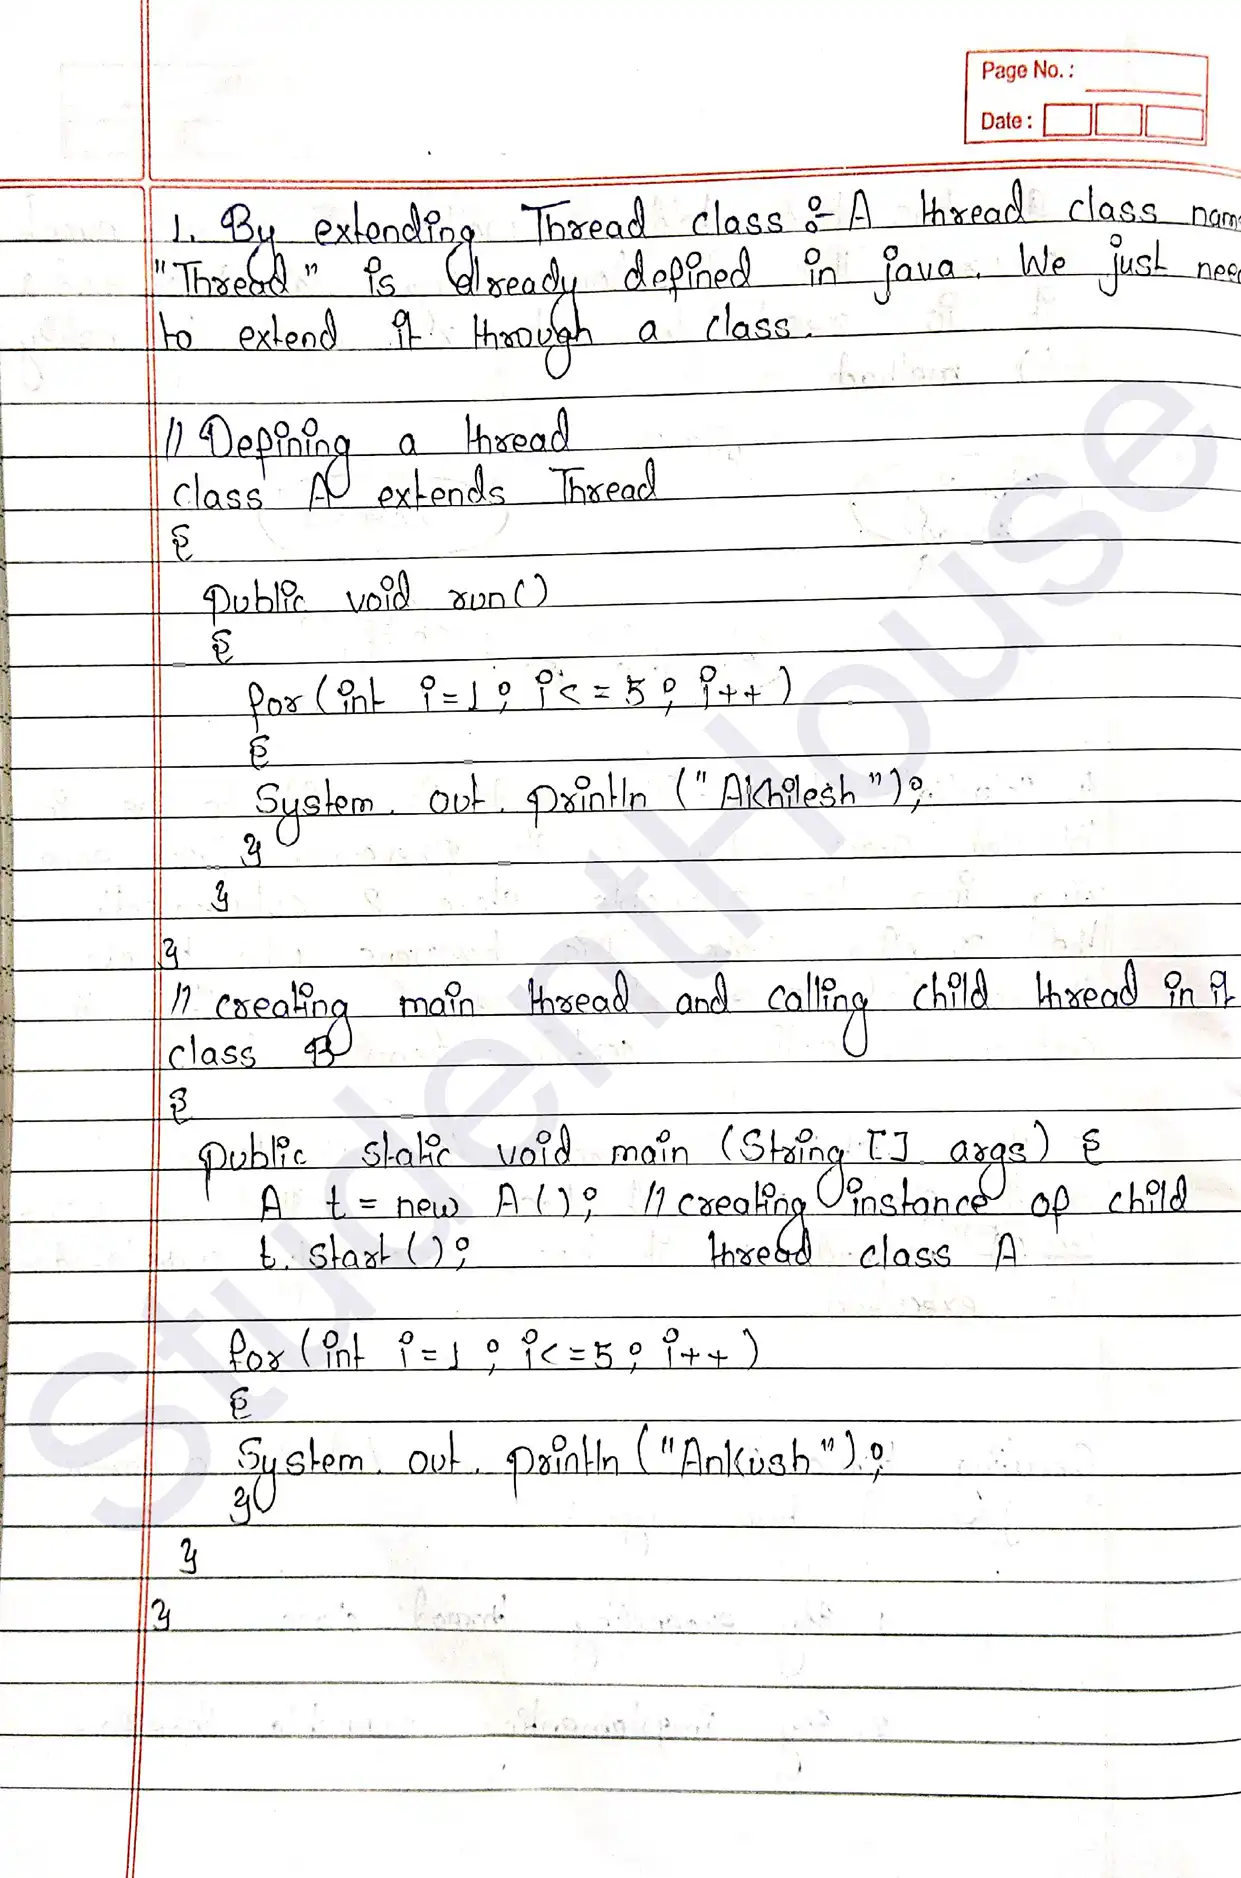 Page No. :
Date :
1. By extending Thread class :- A thread class nam
"Thread" is already defined in java. We just nee
to extend it through a class.
// Defining a thread
class A extends Thread
{
public void run()
{
for (int i=1 ; i<=5 ; i++)
{
System. out. println ("Akhilesh");
}
}
}
// creating main thread and calling child thread in it
class B
{
public static void main (String [] args) {
A t = new A(); // creating instance of child
t. start(); thread class A
for (int i=1 ; i<=5 ; i++)
{
System. out. println ("Ankush");
}
}
}
StudentHouse